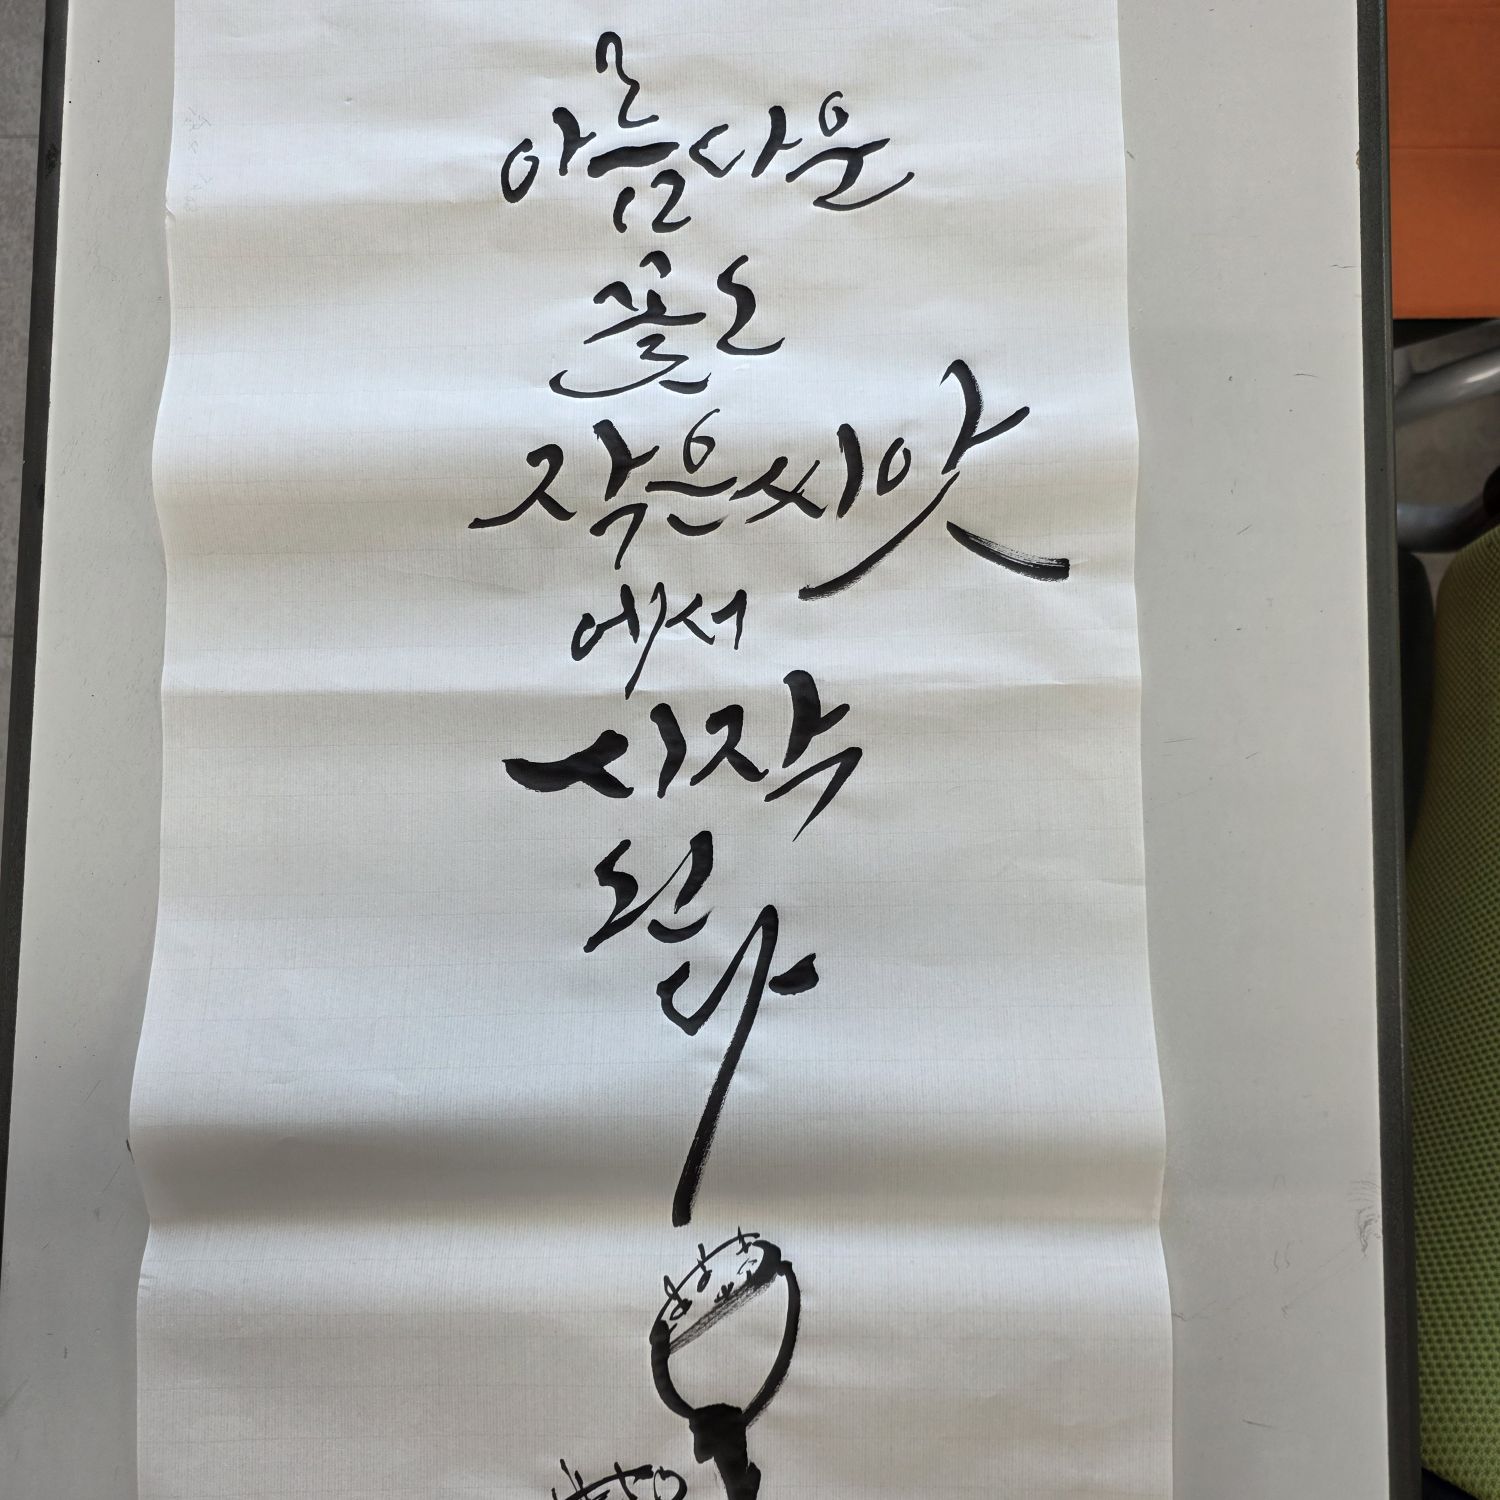 아름다운
꽃도
작은씨앗
에서
시작
된
다